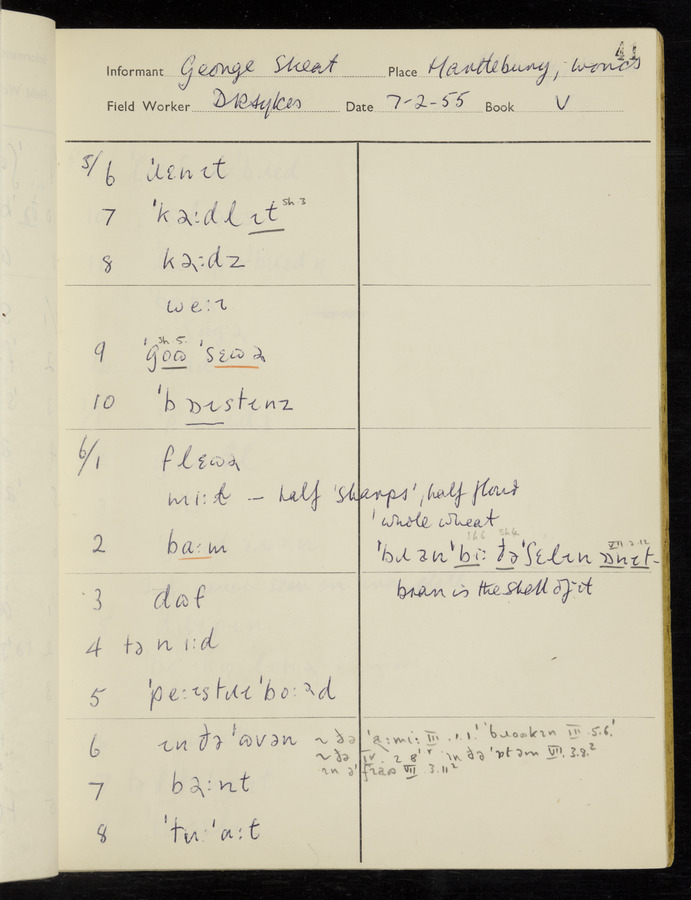 41
Informant George Skeat Place Martlebury, Worcs
Field Worker DRSykes Date 7-2-55 Book V
5/6 ˈɹɛnɪt
7 ˈkəːdlɪt Sh 3
8 kəːdz
weːɪ
9 ˈgɷɷ ˈsɛɷə Sh. 5.
10 ˈbɒɪstɪnz
6/1 flɛɷə
miːt — half 'sharps', half flour
'whole wheat
2 baːm ˈbɹanˈbiː ðəˈʃɛlɪn ɒnɪt- VII.2.12
bran is the shell of it
3 dɷf
4 tə niːd
5 ˈpeːɪstɹɪˈboːəd
6 ɪn ðə ˈɷvən ~ ðə ˈaːmiː III .1.1.' ˈbɹɷkɪn III .5.6.'
~ ðə IV. 2 8 ɪn ðə VII. 3.8.²
ɪn ə VII .3.11²
7 bəːnt
8 ˈtɪɹ ˈaːt